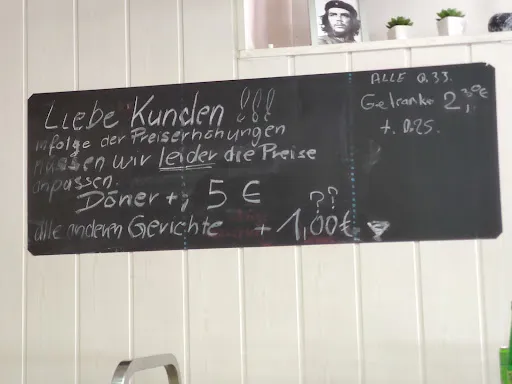 Liebe Kunden !!!
infolge der Preiserhöhungen
müssen wir leider die Preise
anpassen.
Döner +; 5 €
??
alle anderen Gerichte + 1,00€
ALLE 0.33.
Getränke 2,30€
+. 0.25.